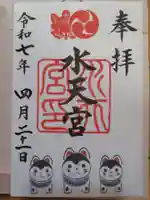 奉拝
水天宮
令和七年
四月二十一日